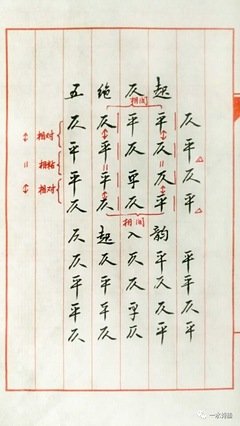 五绝仄起
相间
仄仄平平仄
相对
平平仄仄平
相粘
平平平仄仄
相对
仄仄仄平平
相间
仄起入韵
仄仄仄平平
平平仄仄平
平平平仄仄
仄仄仄平平